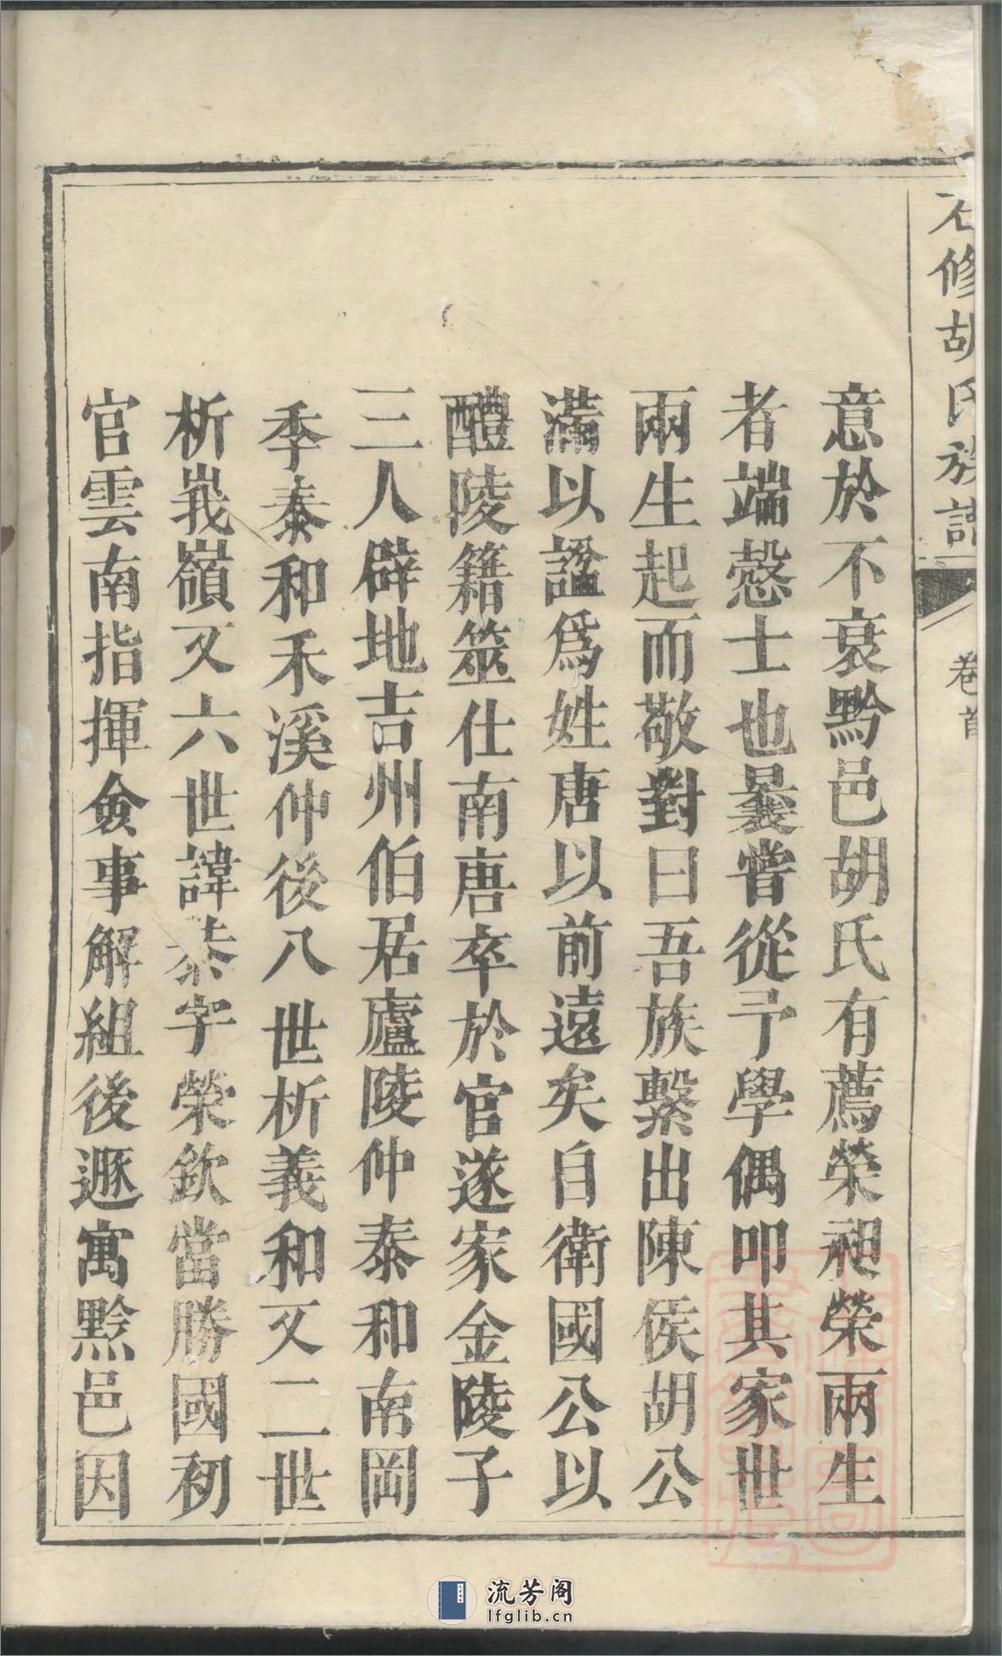 修胡氏族譜
卷首
意於不衰黔邑胡氏有薦榮昶榮兩生
者端慤士也曩嘗從予學偶叩其家世
兩生起而敬對曰吾族繫出陳侯胡公
滿以諡爲姓唐以前遠矣自衛國公以
醴陵籍筮仕南唐卒於官遂家金陵子
三人辟地吉州伯居廬陵仲泰和南岡
季泰和禾溪仲後八世析義和又二世
析峩嶺又六世諱恭字榮欽當勝國初
官雲南指揮僉事解組後遯寓黔邑因
流芳阁
lfglib.cn